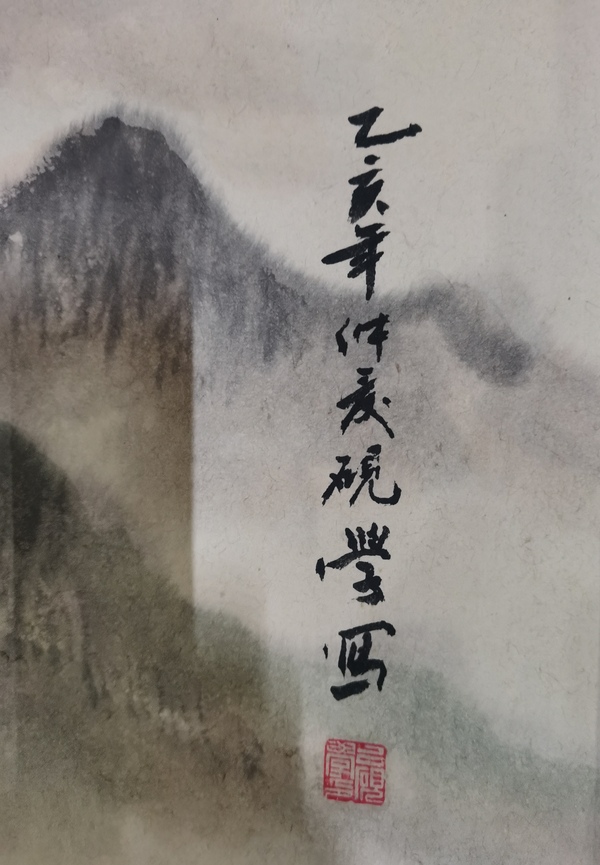 乙亥年仲夏硯學寫